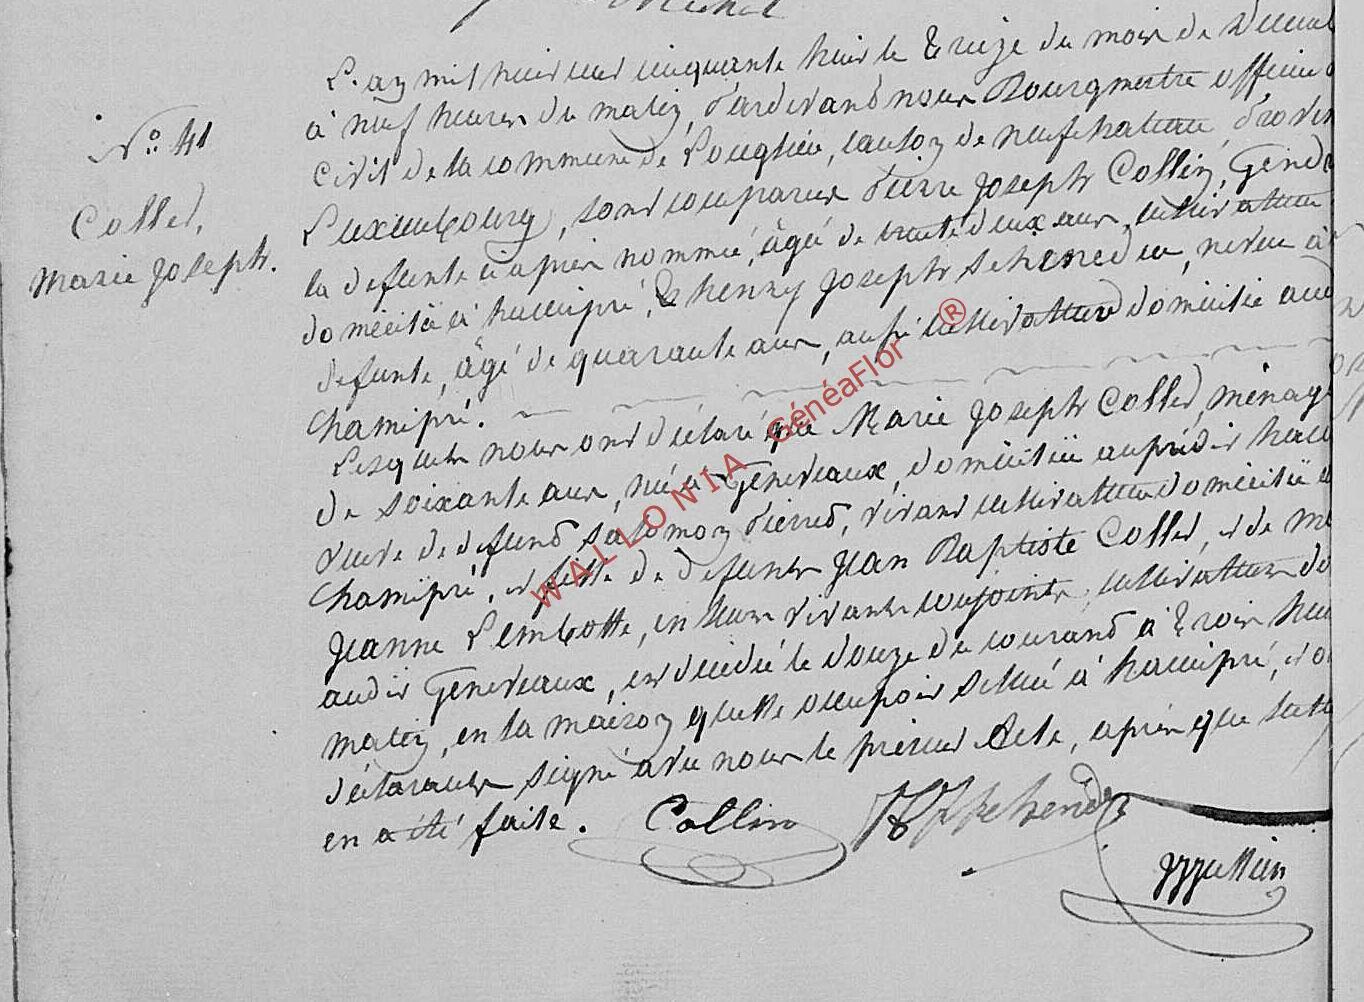 Michel
N° 41
Collet,
Marie Joseph.
L'an mil huit cent cinquante huit le treize du mois de Décem
à neuf heures du matin, Pardevant nous Bourgmestre officier
civil de la commune de Longlier, canton de neufchateau, Provin
Luxembourg, sont comparus Pierre Joseph Collin, Gendre
la défunte ci après nommée, âgé de trente deux ans, cultivateur
domicilié à hamipré, & henry Joseph Schenedie, neveu à
défunte, âgé de quarante ans, aussi cultivateur domicilié au
hamipré.
Lesquels nous ont déclaré que Marie Joseph Collet, ménag
de soixante ans, née à Genevaux, domiciliée au prédit ham
veuve de défunt Salomon Pierret, vivant cultivateur domicilié
hamipré, et fille de défunts Jean Baptiste Collet, et de M
Jeanne Lembotte, en leur vivants conjoints, cultivateurs do
audit Genevaux, est décédée le douze du courant à trois heu
matin, en la maison qu'elle occupoit située à hamipré, et o
déclarants signé avec nous le présent Acte, après que lect
en a été faite.
Collin
WALLONIA GénéaFlor ®